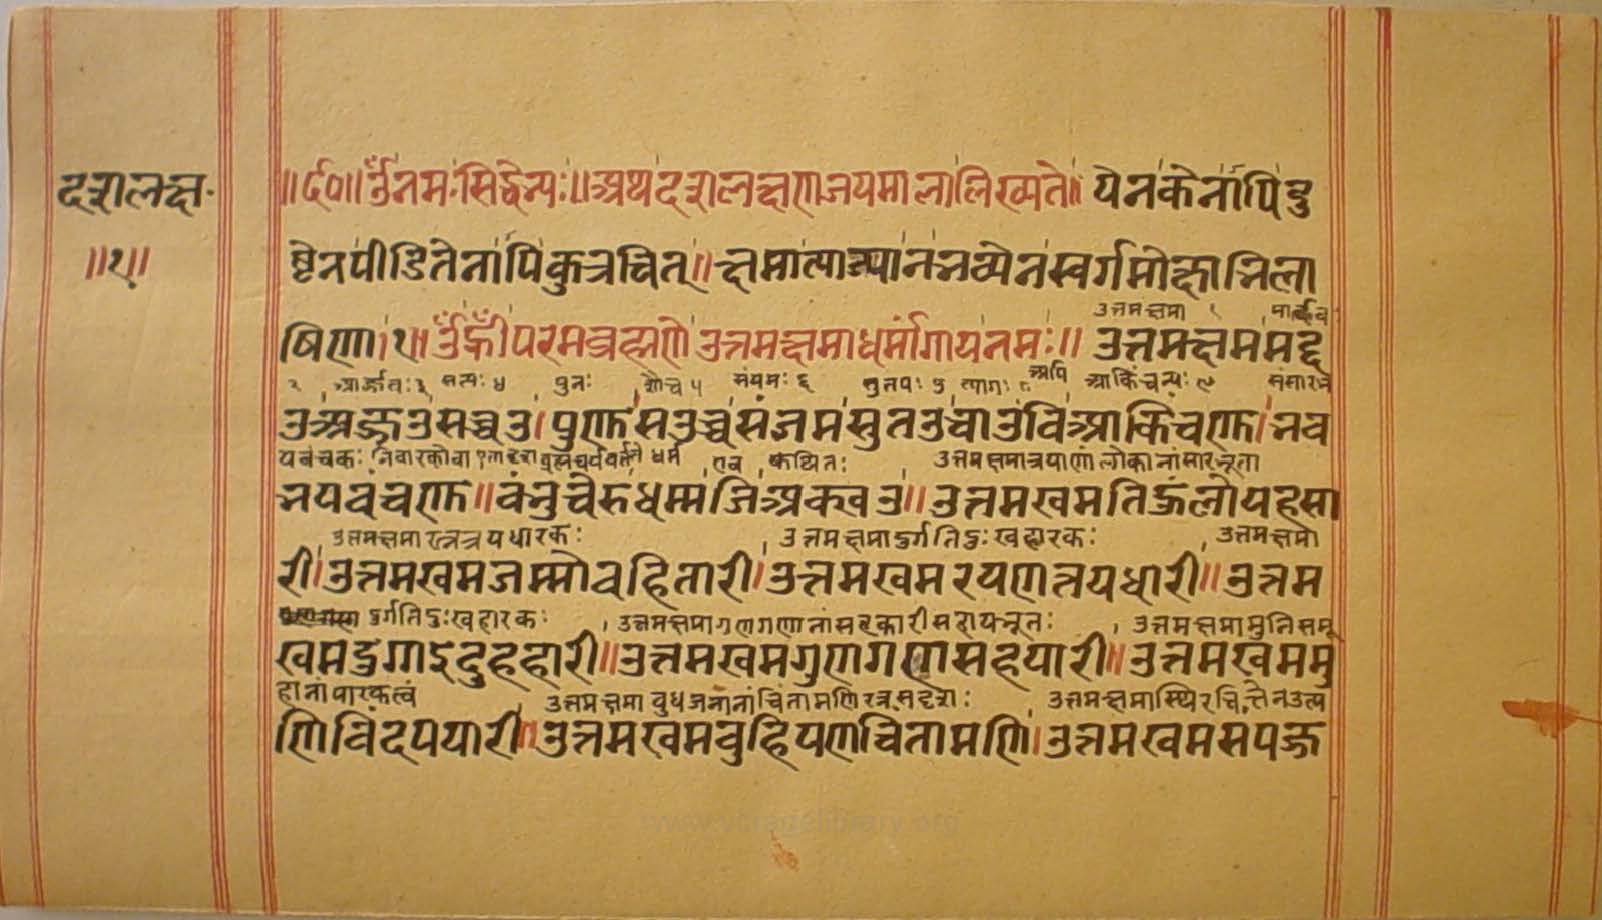 दशलक्ष॰
॥१॥
॥र्द०॥ ॐ नमः सिद्धेभ्यः॥ अथ दशलक्षणजयमाला लिख्यते॥ येन केनापि दु
ष्टेन पीडितेनापि कुत्रचित्॥ क्षमा त्याज्या न भव्येन स्वर्गमोक्षाभिला
उत्तमक्षमा १ मार्दव
षिणा॥१॥ ॐ ह्रीँ परमब्रह्मणे उत्तमक्षमाधर्मांगाय नमः॥ उत्तमक्षममद्द
२ आर्जवः ३ सत्यः ४ पुनः शौच ५ संयमः ६ सुतपः ७ त्यागः ८ अपि आकिंचन्यः ९ संसार
उ अज्जउ सच्चउ। पुण सउच्च संजम सुतउ चाउ वि आकिंचण। भव
धर्म एव कथितः उत्तमक्षमा त्रयाणां लोकानां सारभूता
भयवंचण॥ बंभुचेरु धम्म जि अक्खउ॥ उत्तमखम तिल्लोयहसा
उत्तमक्षमा रत्नत्रयधारकः उत्तमक्षमा दुर्गतिदुःखहारकः उत्तमक्षमा
री। उत्तमखम जम्मोवहितारी। उत्तमखम रयणत्तयधारी॥ उत्तम
दुर्गतिदुःखहारकः उत्तमक्षमा गुणगणानां सहकारी सहायभूतः उत्तमक्षमा मुनिसमू
खम दुग्गाइदुहहारी॥ उत्तमखम गुणगणसहयारी॥ उत्तमखम मु
हानां उत्तमक्षमा बुधजनानां चिंतामणिरत्नसदृशः उत्तमक्षमा स्थिरचित्तेन उत्प
णिविंदपयारी॥ उत्तमखम बुहियणचिंतामणि। उत्तमखम संपज्ज
www.vitragelibrary.org